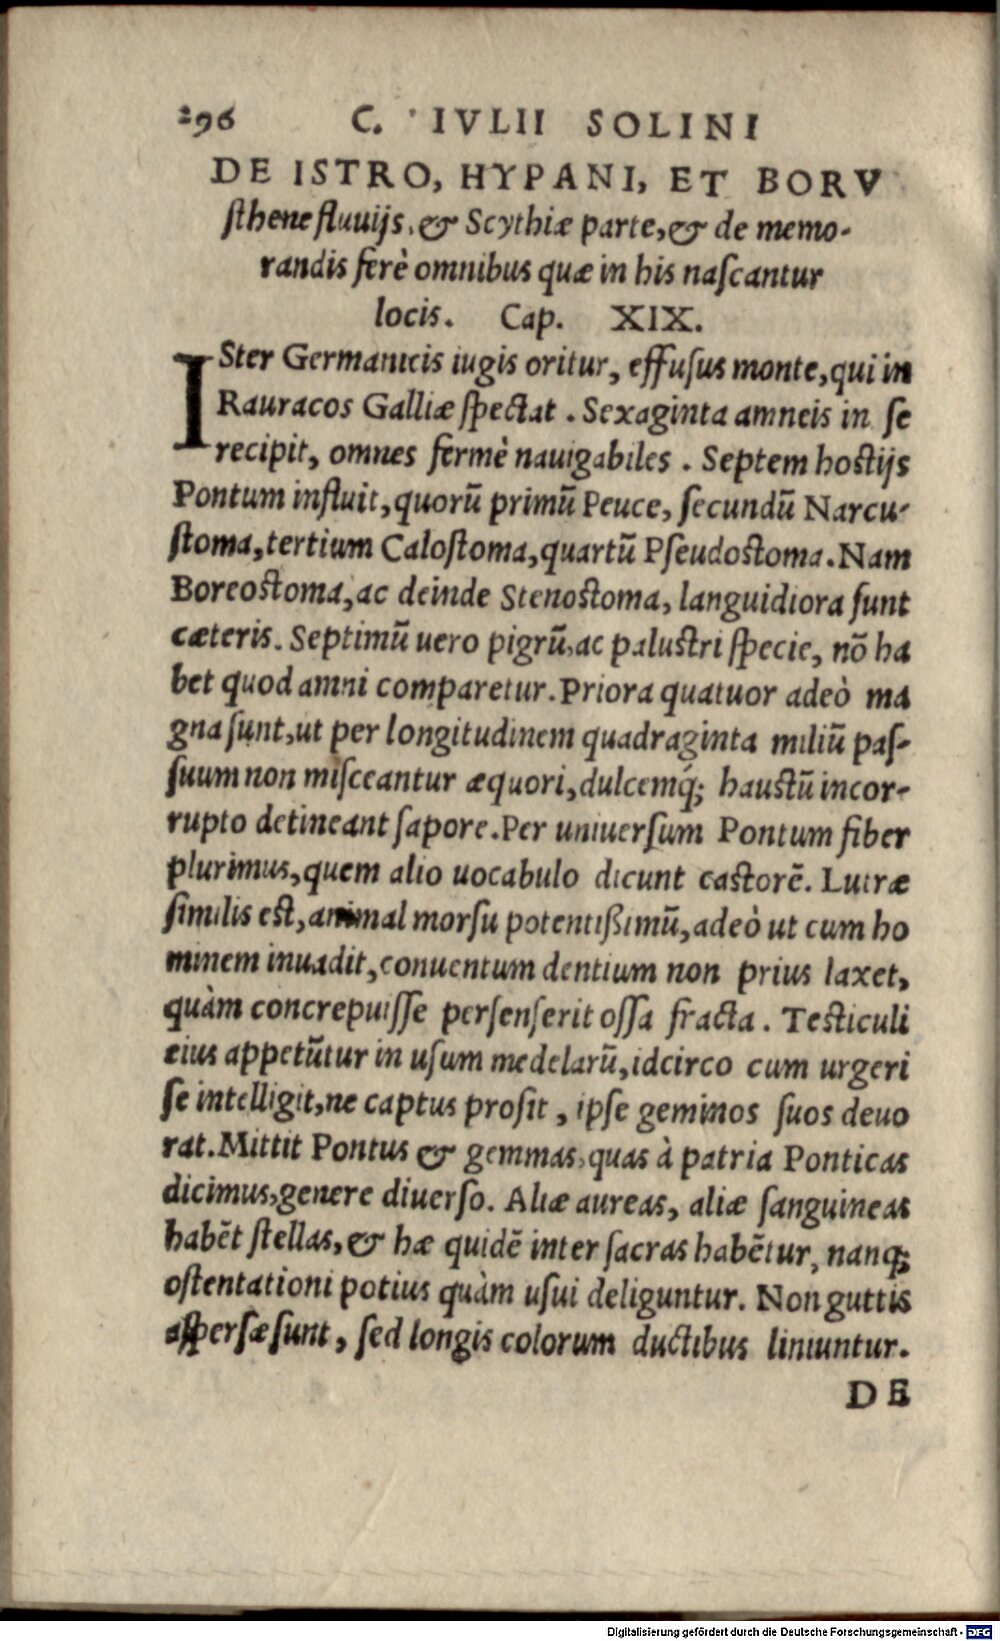 296 C. IVLII SOLINI
DE ISTRO, HYPANI, ET BORV
sthene fluuijs, & Scythiæ parte, & de memo-
randis ferè omnibus quæ in his nascantur
locis. Cap. XIX.
ISter Germanicis iugis oritur, effusus monte, qui in
Rauracos Galliæ spectat. Sexaginta amneis in se
recipit, omnes fermè nauigabiles. Septem hostijs
Pontum influit, quorū primū Peuce, secundū Narcu-
stoma, tertium Calostoma, quartū Pseudostoma. Nam
Boreostoma, ac deinde Stenostoma, languidiora sunt
cæteris. Septimū uero pigrū, ac palustri specie, nō ha
bet quod amni comparetur. Priora quatuor adeò ma
gna sunt, ut per longitudinem quadraginta miliū pas-
suum non misceantur æquori, dulcemq́; haustū incor-
rupto detineant sapore. Per uniuersum Pontum fiber
plurimus, quem alio uocabulo dicunt castorē. Lutræ
similis est, animal morsu potentißimū, adeò ut cum ho
minem inuadit, conuentum dentium non prius laxet,
quàm concrepuisse persenserit ossa fracta. Testiculi
eius appetūtur in usum medelarū, idcirco cum urgeri
se intelligit, ne captus prosit, ipse geminos suos deuo
rat. Mittit Pontus & gemmas, quas à patria Ponticas
dicimus, genere diuerso. Aliæ aureas, aliæ sanguineas
habēt stellas, & hæ quidē inter sacras habētur, nanq;
ostentationi potius quàm usui deliguntur. Non guttis
aspersæ sunt, sed longis colorum ductibus liniuntur.
DE
Digitalisierung gefördert durch die Deutsche Forschungsgemeinschaft - DFG